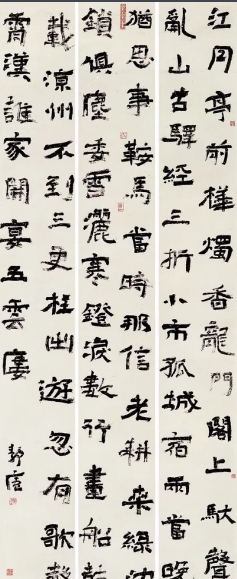 江月亭前樺燭香龍門閣上馱聲
亂山古驛經三折小市孤城宿兩當晚
猶思事鞍馬當時那信老耕桑綠沈
鎖俱塵委雪灑寒鐙淚數行畫船鼓
載涼州不到三更枉出遊忽有歌聲
霄漢誰家開宴五雲樓